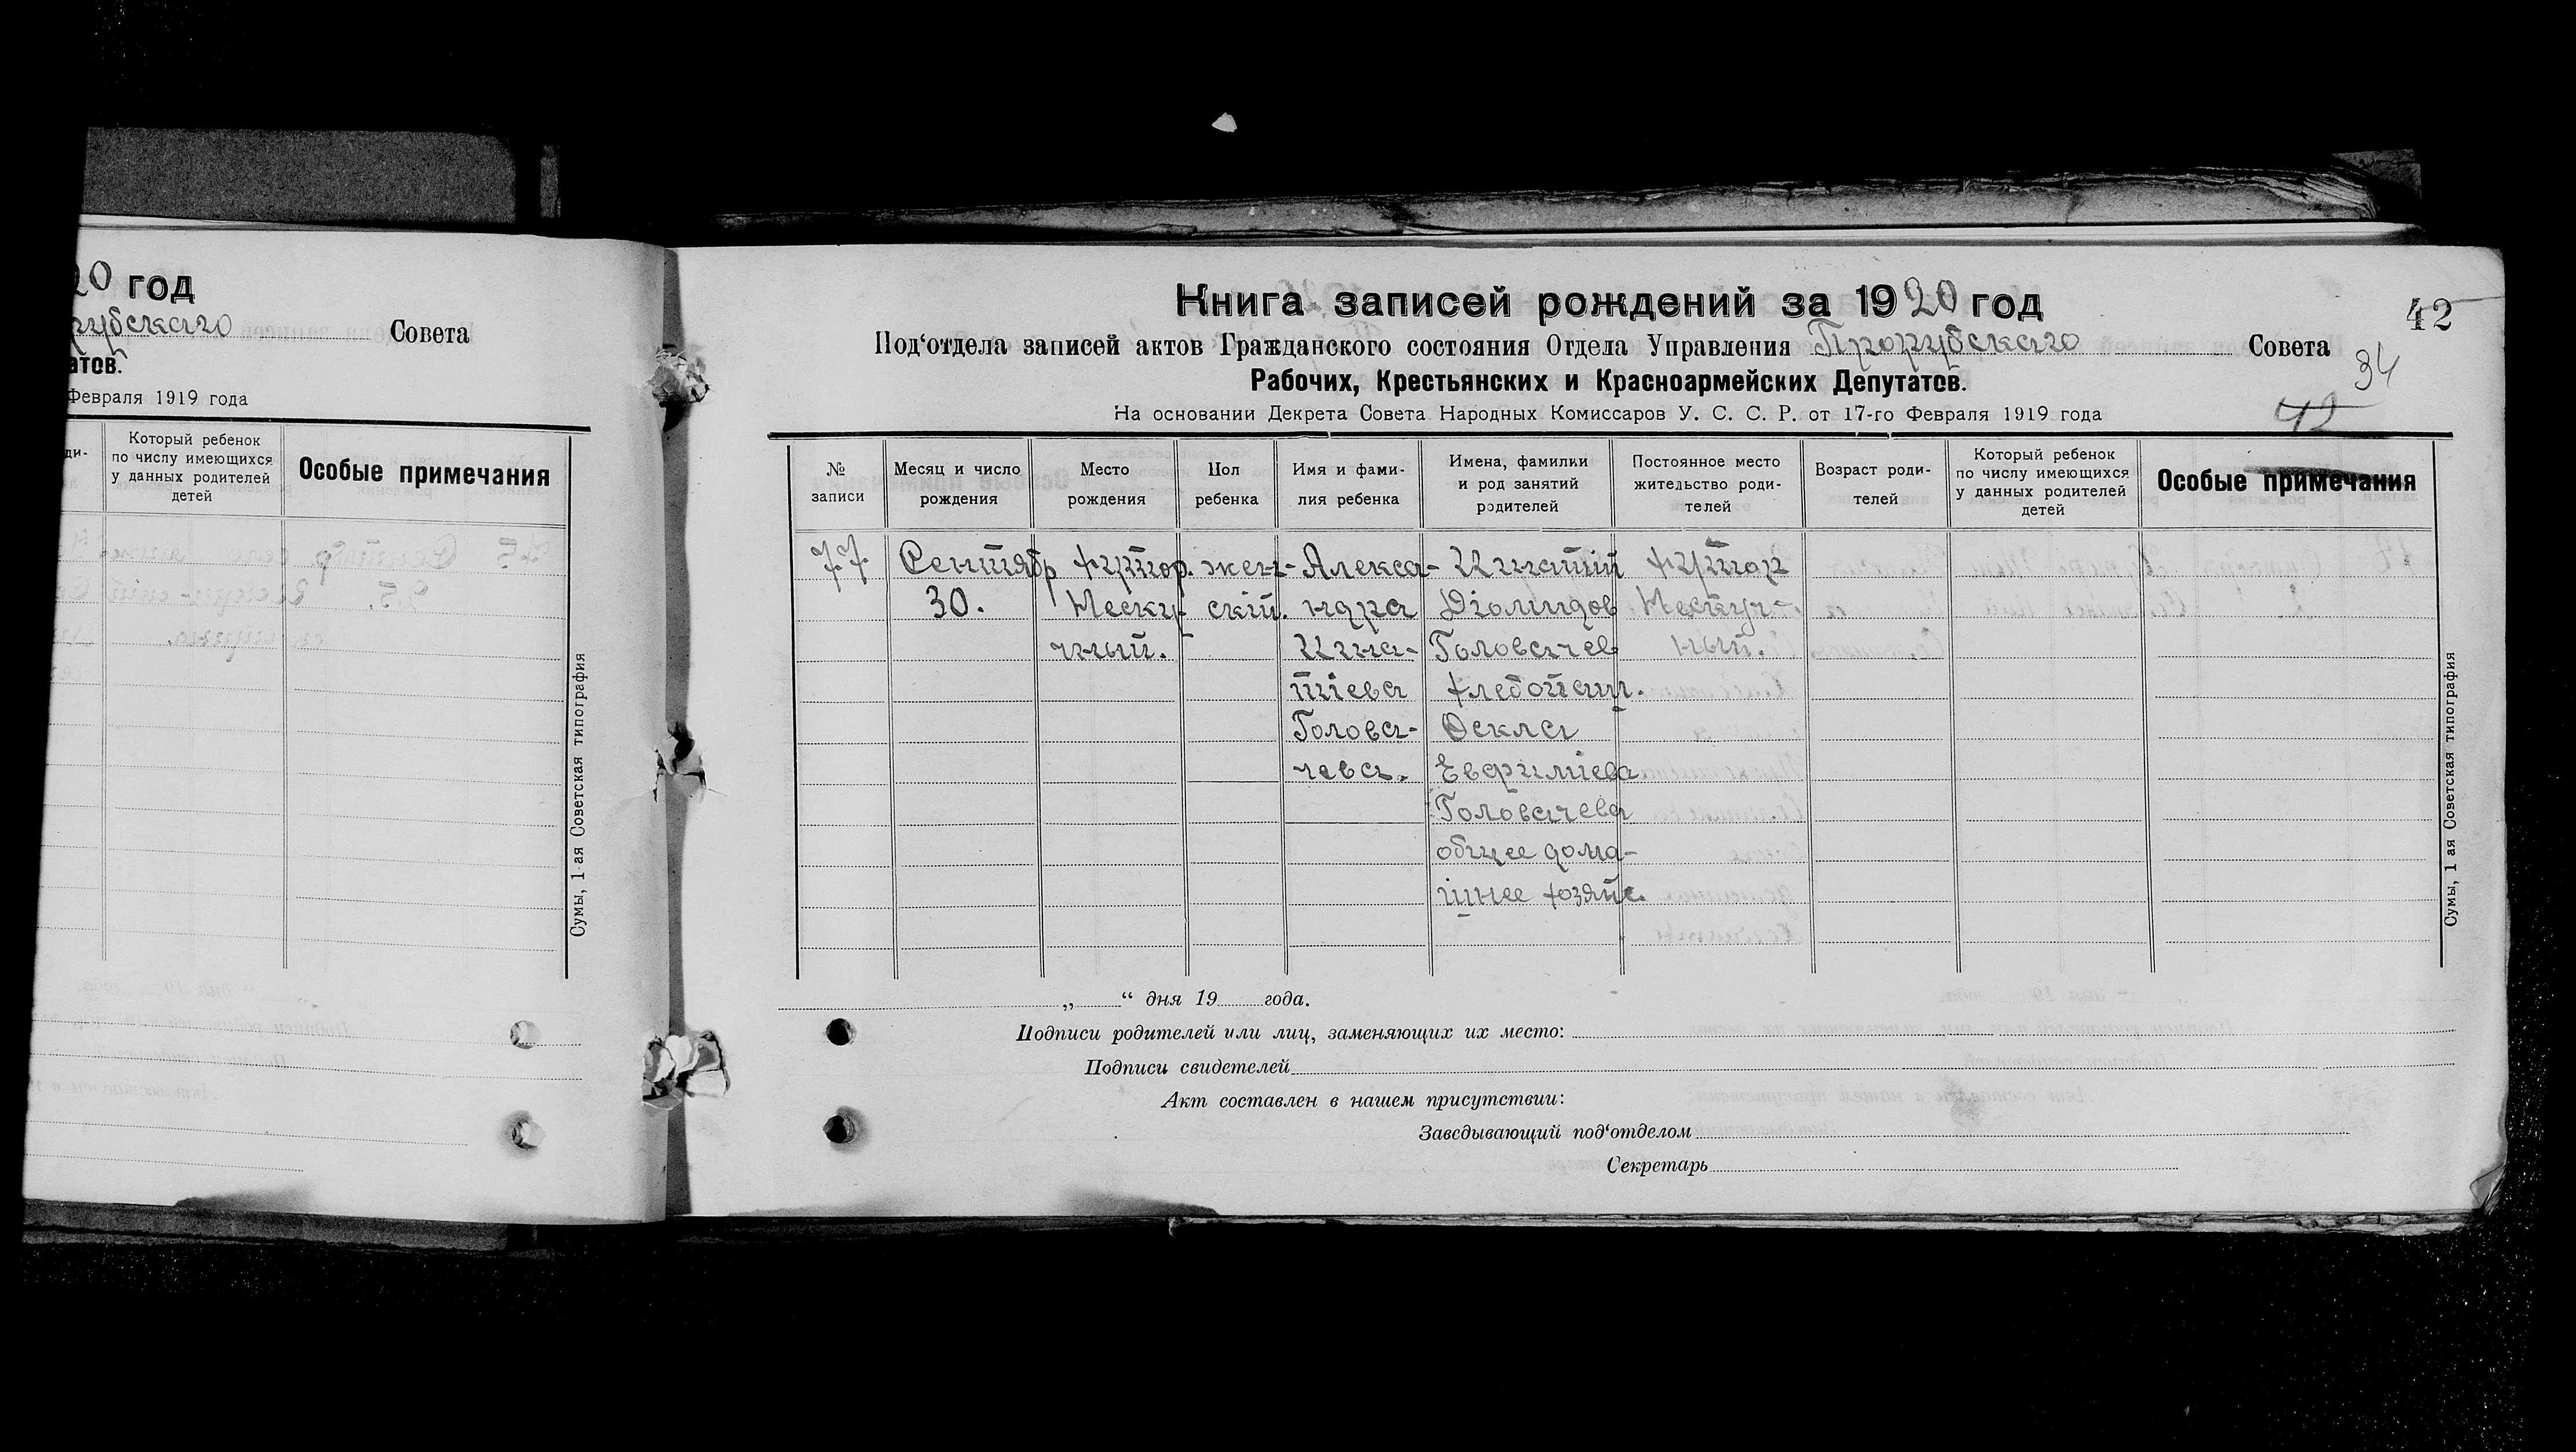 20 год
рубскаго Совета
атов.
Февраля 1919 года
ди-
Который ребенок
по числу имеющихся
у данных родителей
детей
Особые примечания
Сумы, 1-ая Советская типография
Книга записей рождений за 1920 год
42
Под‘отдела записей актов Гражданского состояния Отдела Управления Прорубскаго Совета
34
Рабочих, Крестьянских и Красноармейских Депутатов.
На основании Декрета Совета Народных Комиссаров У. С. С. Р. от 17-го Февраля 1919 года
42
№ записи
Месяц и число рождения
Место рождения
Пол ребенка
Имя и фами-
лия ребенка
Имена, фамилии
и род занятий
родителей
Постоянное место
жительство роди-
телей
Возраст роди-
телей
Который ребенок
по числу имеющихся
у данных родителей
детей
Особые примечания
77 Сентябр хутор. жен- Алекса- Игнатий хутор
30. Неску- ский. ндра Діомидов Нескуч-
чный. Игна- Головачев ный.
тіева хлебопаш.
Голова- Фекла
чева. Евфиміева
Головачева
общее дома-
шнее хозяйс.
„ “ дня 19 года.
Подписи родителей или лиц, заменяющих их место:
Подписи свидетелей
Акт составлен в нашем присутствии:
Заведывающий под‘отделом
Секретарь
Сумы, 1 ая Советская типография